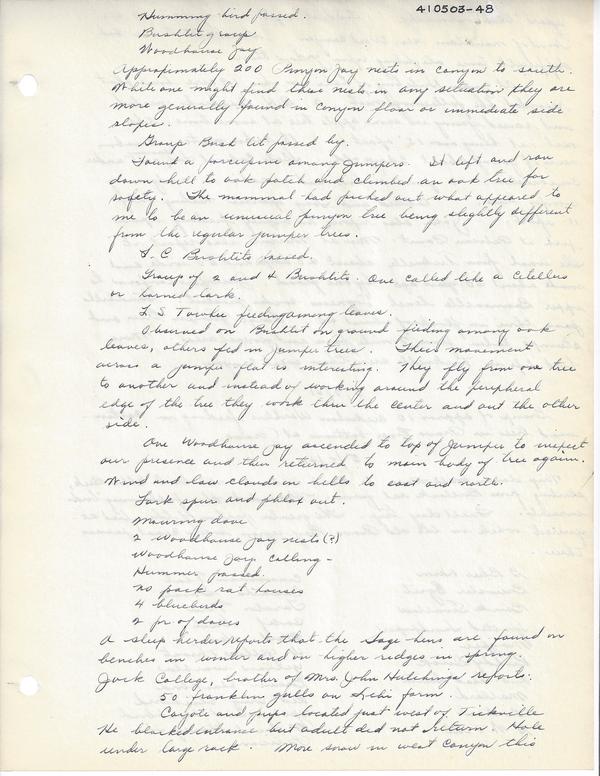 410503-48
Humming bird passed.
Bushtit group
Woodhouse jay
Approximately 200 Pinyon Jay nests in canyon to south.
While one might find these nests in any situation they are
more generally found in canyon floor or immediate side
slopes.
Group Bush tit passed by.
Found a porcupine among Junipers. It left and ran
down hill to oak patch and climbed an oak tree for
safety. The mammal had picked out what appeared to
me to be an unusual pinyon tree being slightly different
from the regular juniper trees.
Bushtits passed.
Group of 2 and 4 Bushtits. One called like a Citellus
or horned lark.
S. Towhee feeding among leaves.
Observed on Bushtit on ground feeding among oak
leaves, others fed in juniper trees. Their movement
across a juniper flat is interesting. They fly from one tree
to another and instead of working around the peripheral
edge of the tree they work thru the center and out the other
side.
One Woodhouse jay ascended to top of Juniper to inspect
our presence and then returned to main body of tree again.
Wind and low clouds on hills to east and north.
Lark spur and phlox out.
Mourning dove
2 Woodhouse jay nests (?)
Woodhouse Jay calling -
Hummer passed.
no pack rat houses
4 bluebirds
2 pr of doves
A sheep herder reports that the Sage hens are found on
benches in winter and on higher ridges in spring.
Jack College, brother of Mrs. John Hutchings reports:
50 franklin gulls on Lehi farm.
Coyote and pups located just west of Tickville
He blocked entrance but adult did not return. Hole
under large rock. More snow in west Canyon this